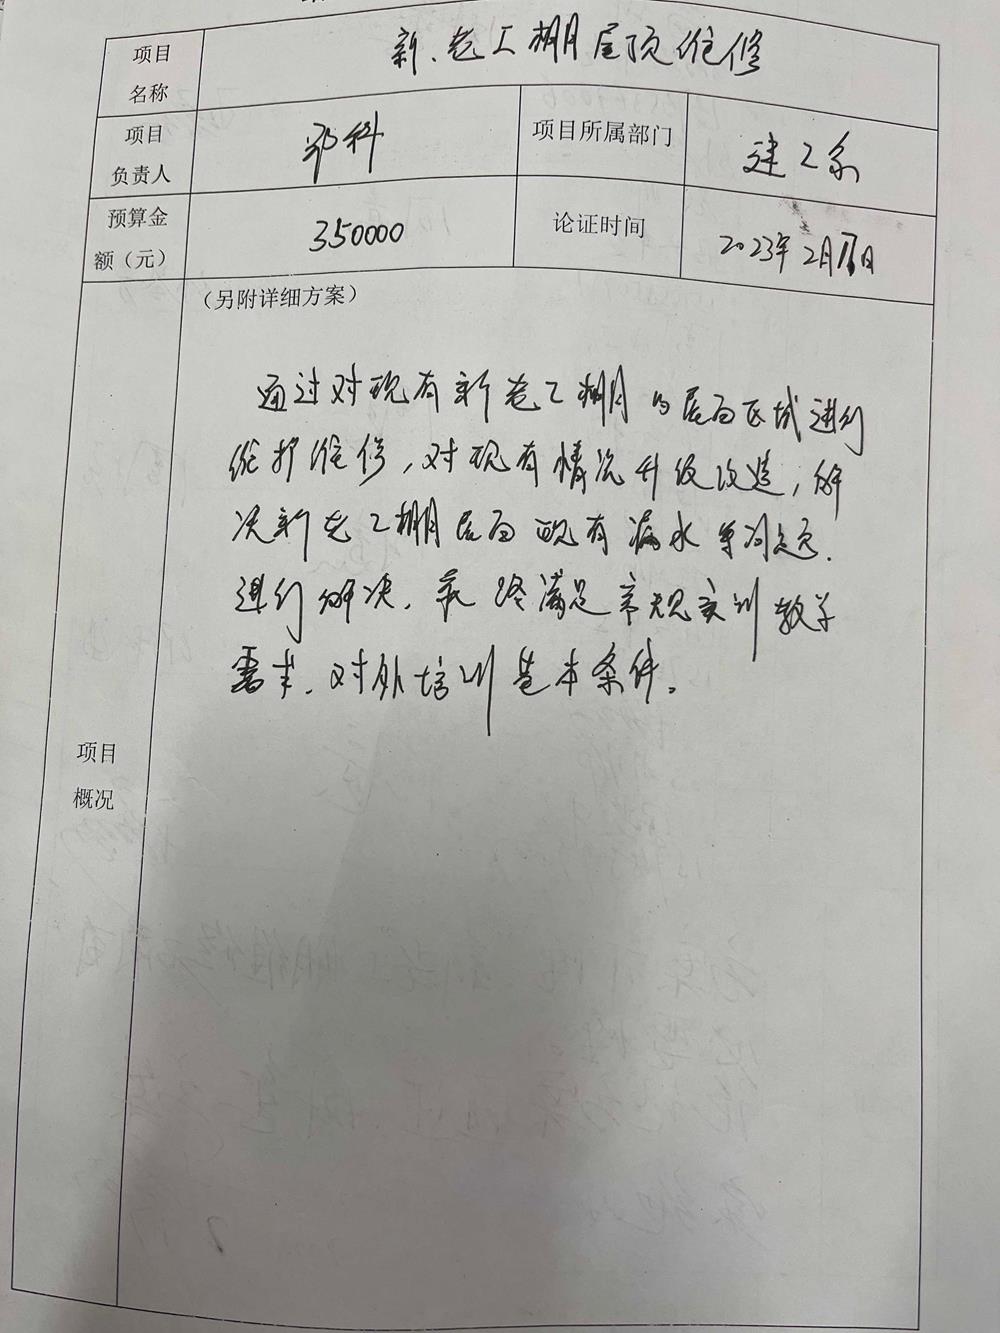 项目
名称
新、老工棚屋顶维修
项目
负责人
邓科
项目所属部门
建工系
预算金
额（元）
350000
论证时间
2023年2月 日
（另附详细方案）
通过对现有新老工棚的屋面区域进行
维护维修，对现有情况升级改造，解
决新老工棚屋面现有漏水等问题.
进行解决，最终满足常规实训教学
需求、对外培训基本条件。
项目
概况